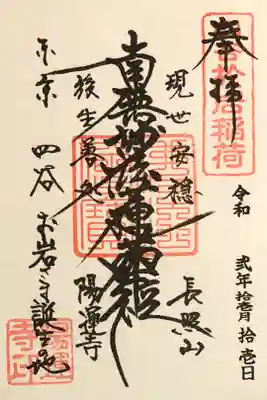 奉拝
令和 弐年拾壱月拾壱日
現世安穏
南無妙法蓮華経
後生善処
長照山
陽運寺
東京 四谷 お岩さま誕生の地
陽運寺印